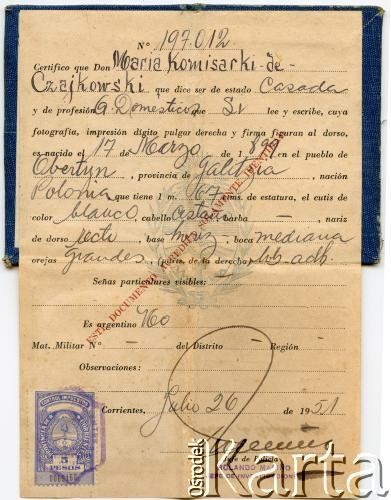 Nº 197.012
Certifico que Don Maria Komisarki de
Czajkowski que dice ser de estado Casada
y de profesión Q. Domesticos que Si
lee y escribe, cuya
fotografía, impresión dígito pulgar derecha y firma figuran al dorso,
es nacido el 17 de Marzo de 189 en el pueblo de
Obertyn, provincia de Galitzia, nación
Polonia que tiene 1 m. 67 ctms. de estatura, el cutis de
color blanco, cabello barba — nariz
de dorso recto, base boca mediana
orejas grandes, (partic. de la derecha) lob. adh.
Señas particulares visibles:
Es argentino No
Mat. Militar Nº — del Distrito — Región —
Observaciones:
Corrientes, Julio 26 de 1951
Jefe de Policía
ROLANDO
ESTE DOCUMENTO ACREDITA IDENTIDAD
5
PESOS
Ośrodek
Karta